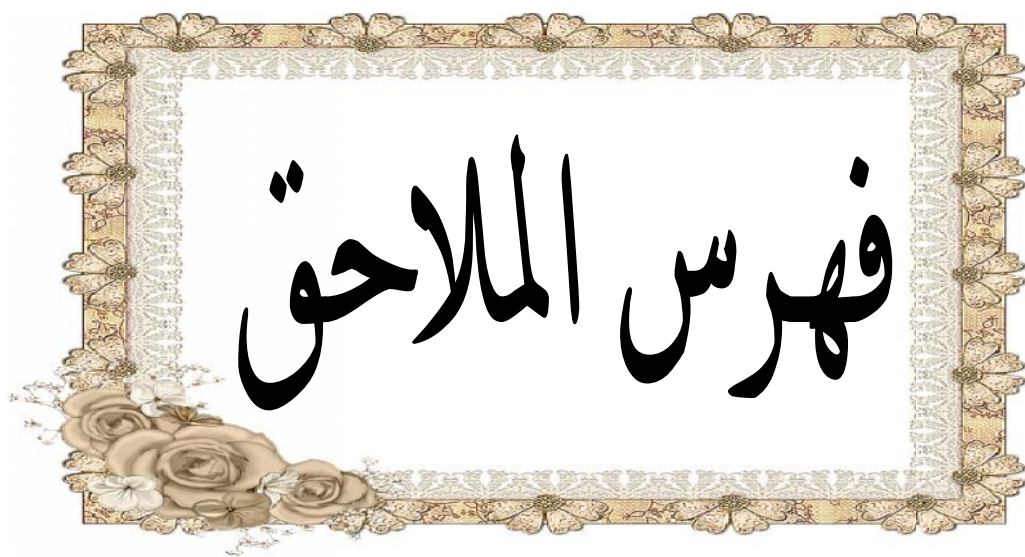 فهرس الملاحق